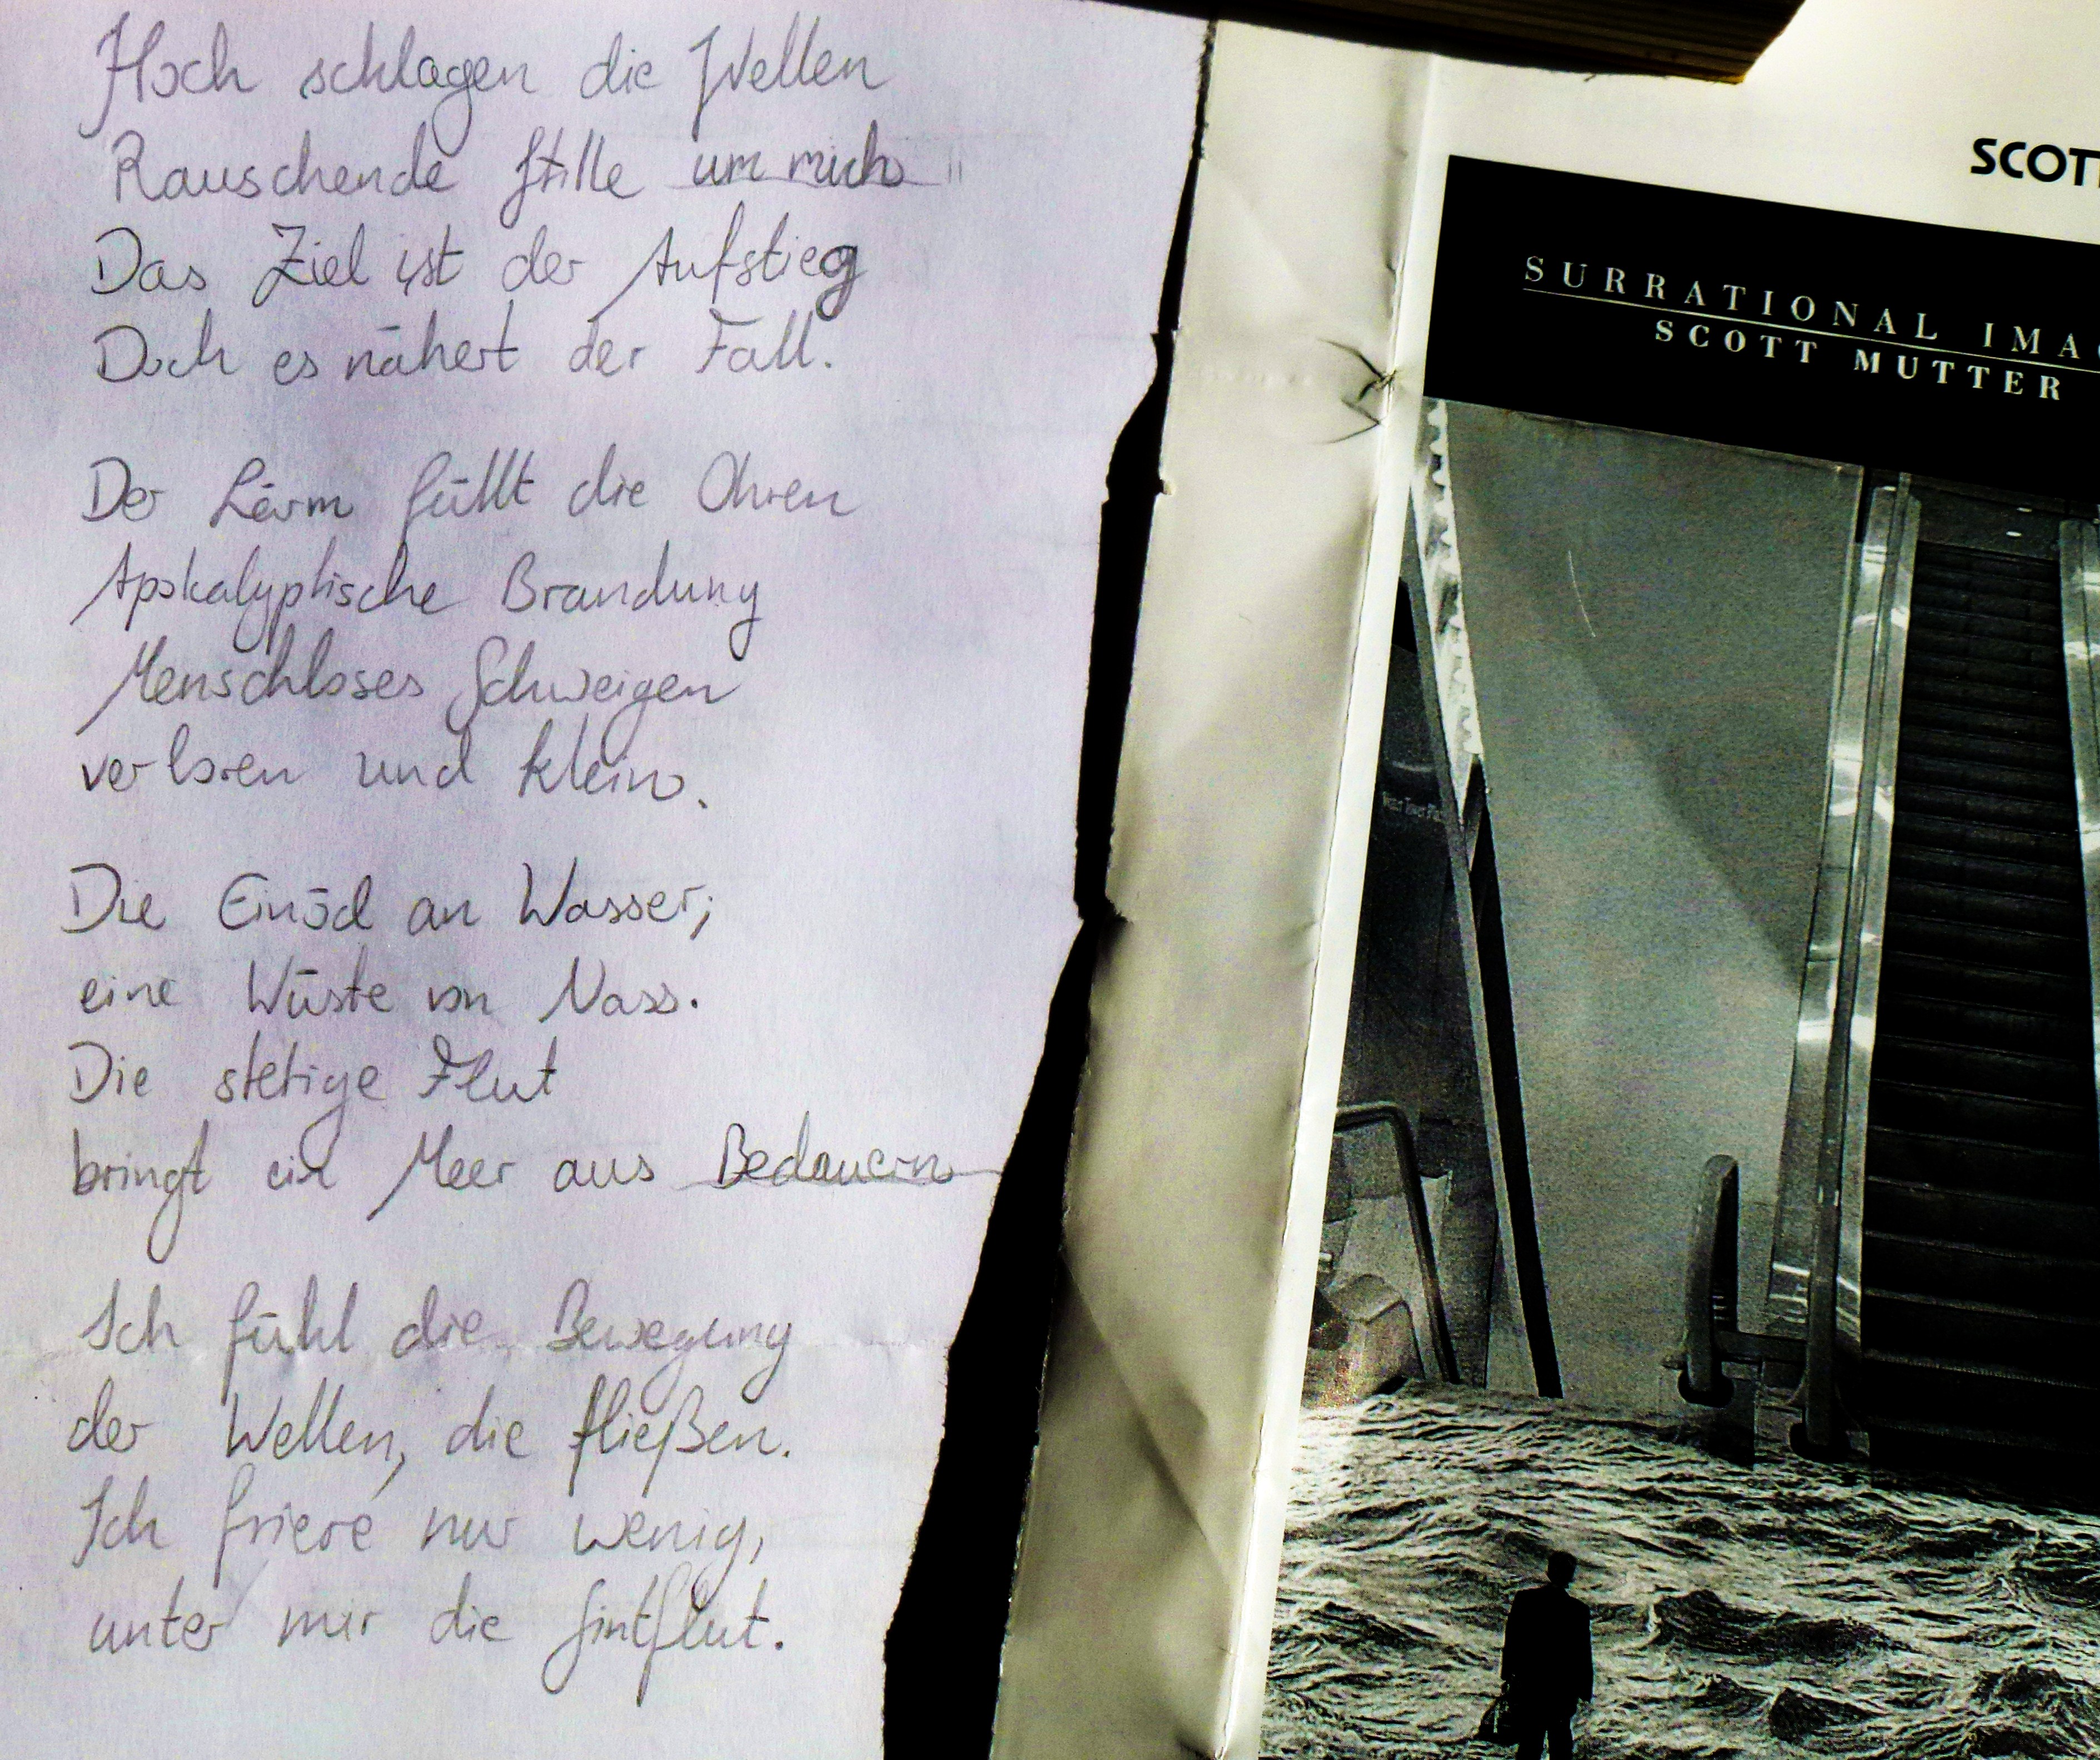 Hoch schlagen die Wellen
Rauschende Stille um mich
Das Ziel ist der Aufstieg
Doch es nähert der Fall.
Der Lärm füllt die Ohren
Apokalyptische Brandung
Menschloses Schweigen
verloren und klein.
Die Einöd an Wasser;
eine Wüste von Nass.
Die stetige Flut
bringt ein Meer aus Bedauern
Ich fühl die Bewegung
der Wellen, die fließen.
Ich friere nur wenig,
unter mir die Sintflut.
SCOTT
SURRATIONAL IMAG
SCOTT MUTTER